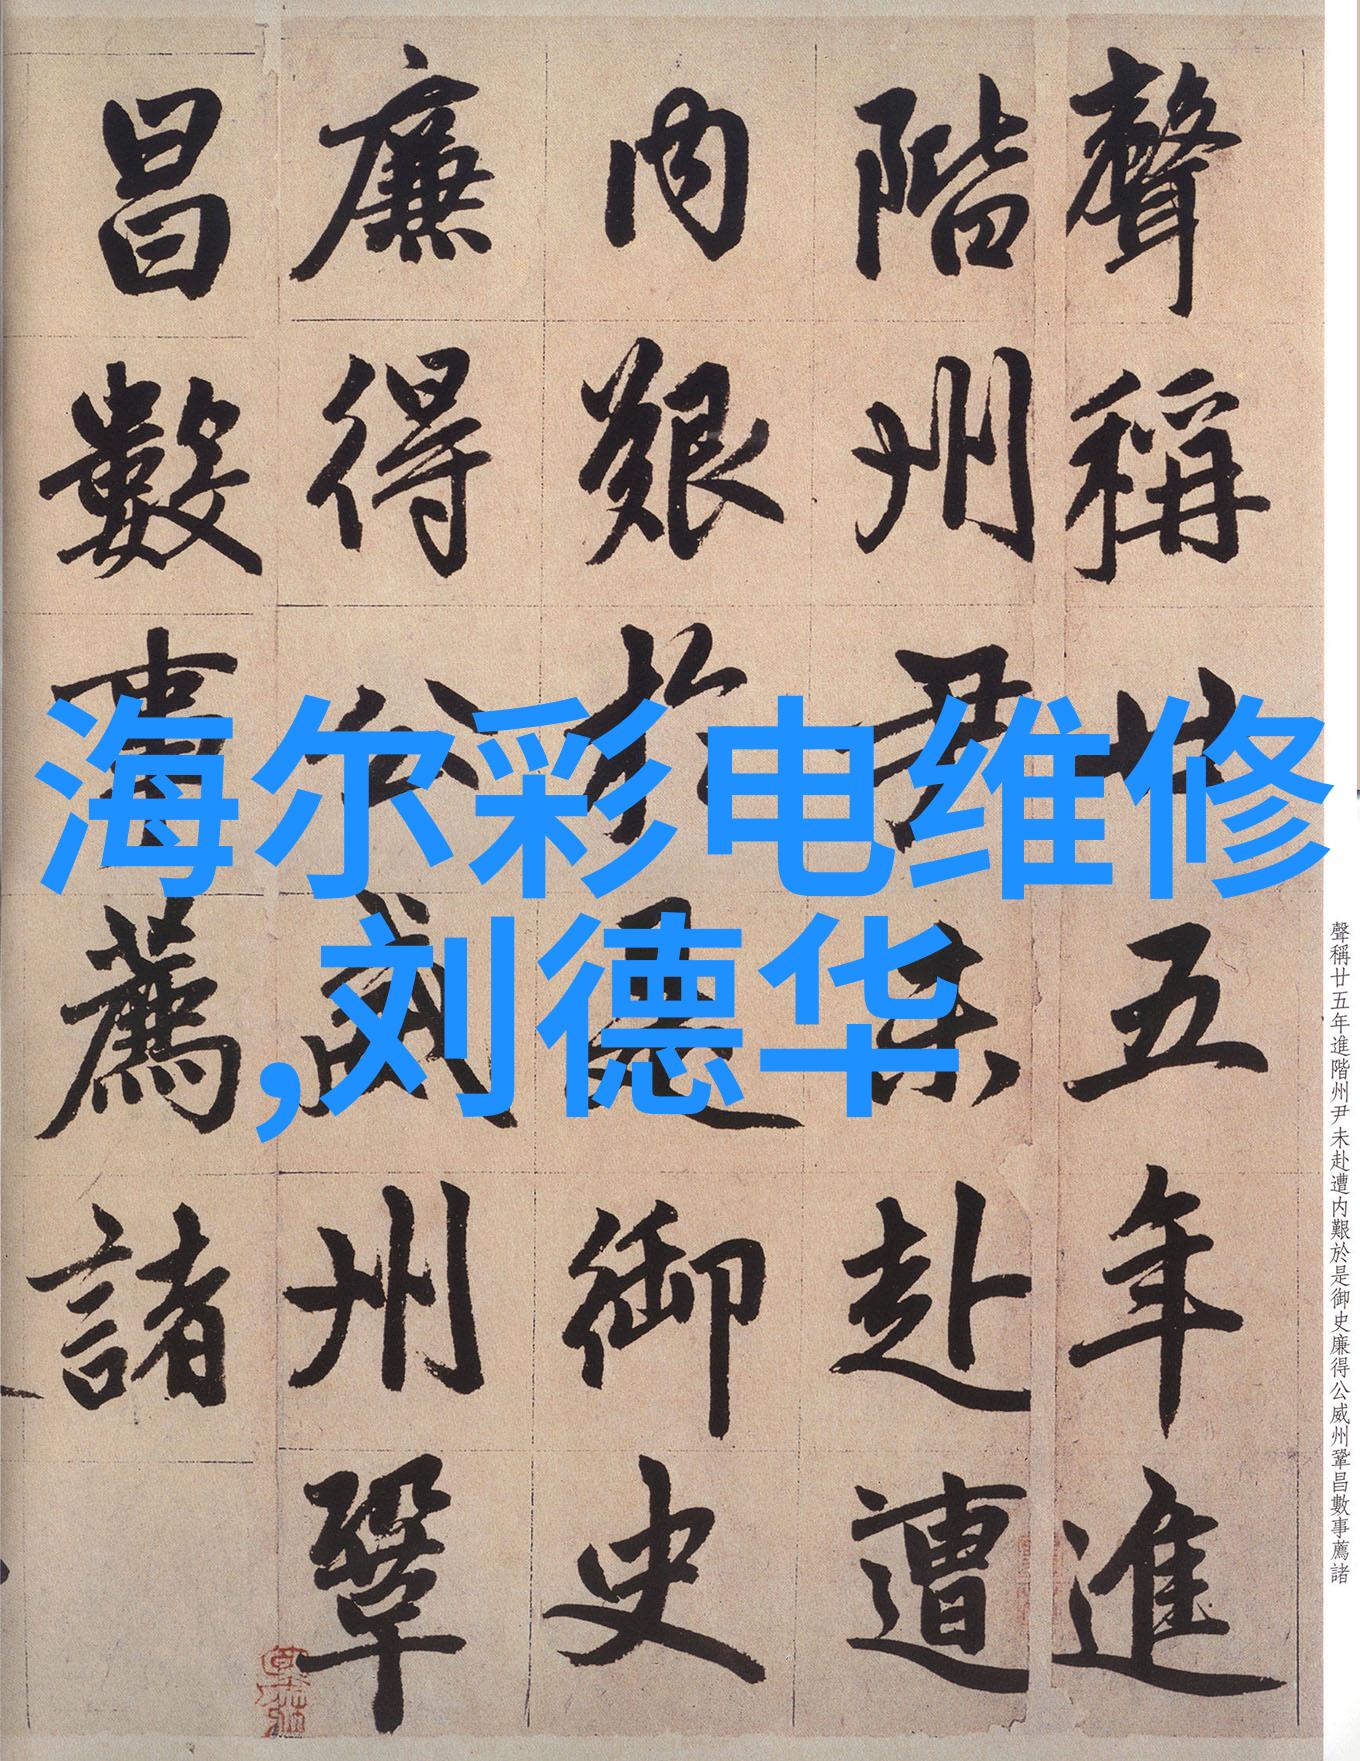 聲稱廿五年進
階州尹未赴遭
内艱於是御史
廉得公威州鞏
昌數事薦諸
海尔彩电维修
,刘德华
聲稱廿五年進階州尹未赴遭内艱於是御史廉得公威州鞏昌數事薦諸